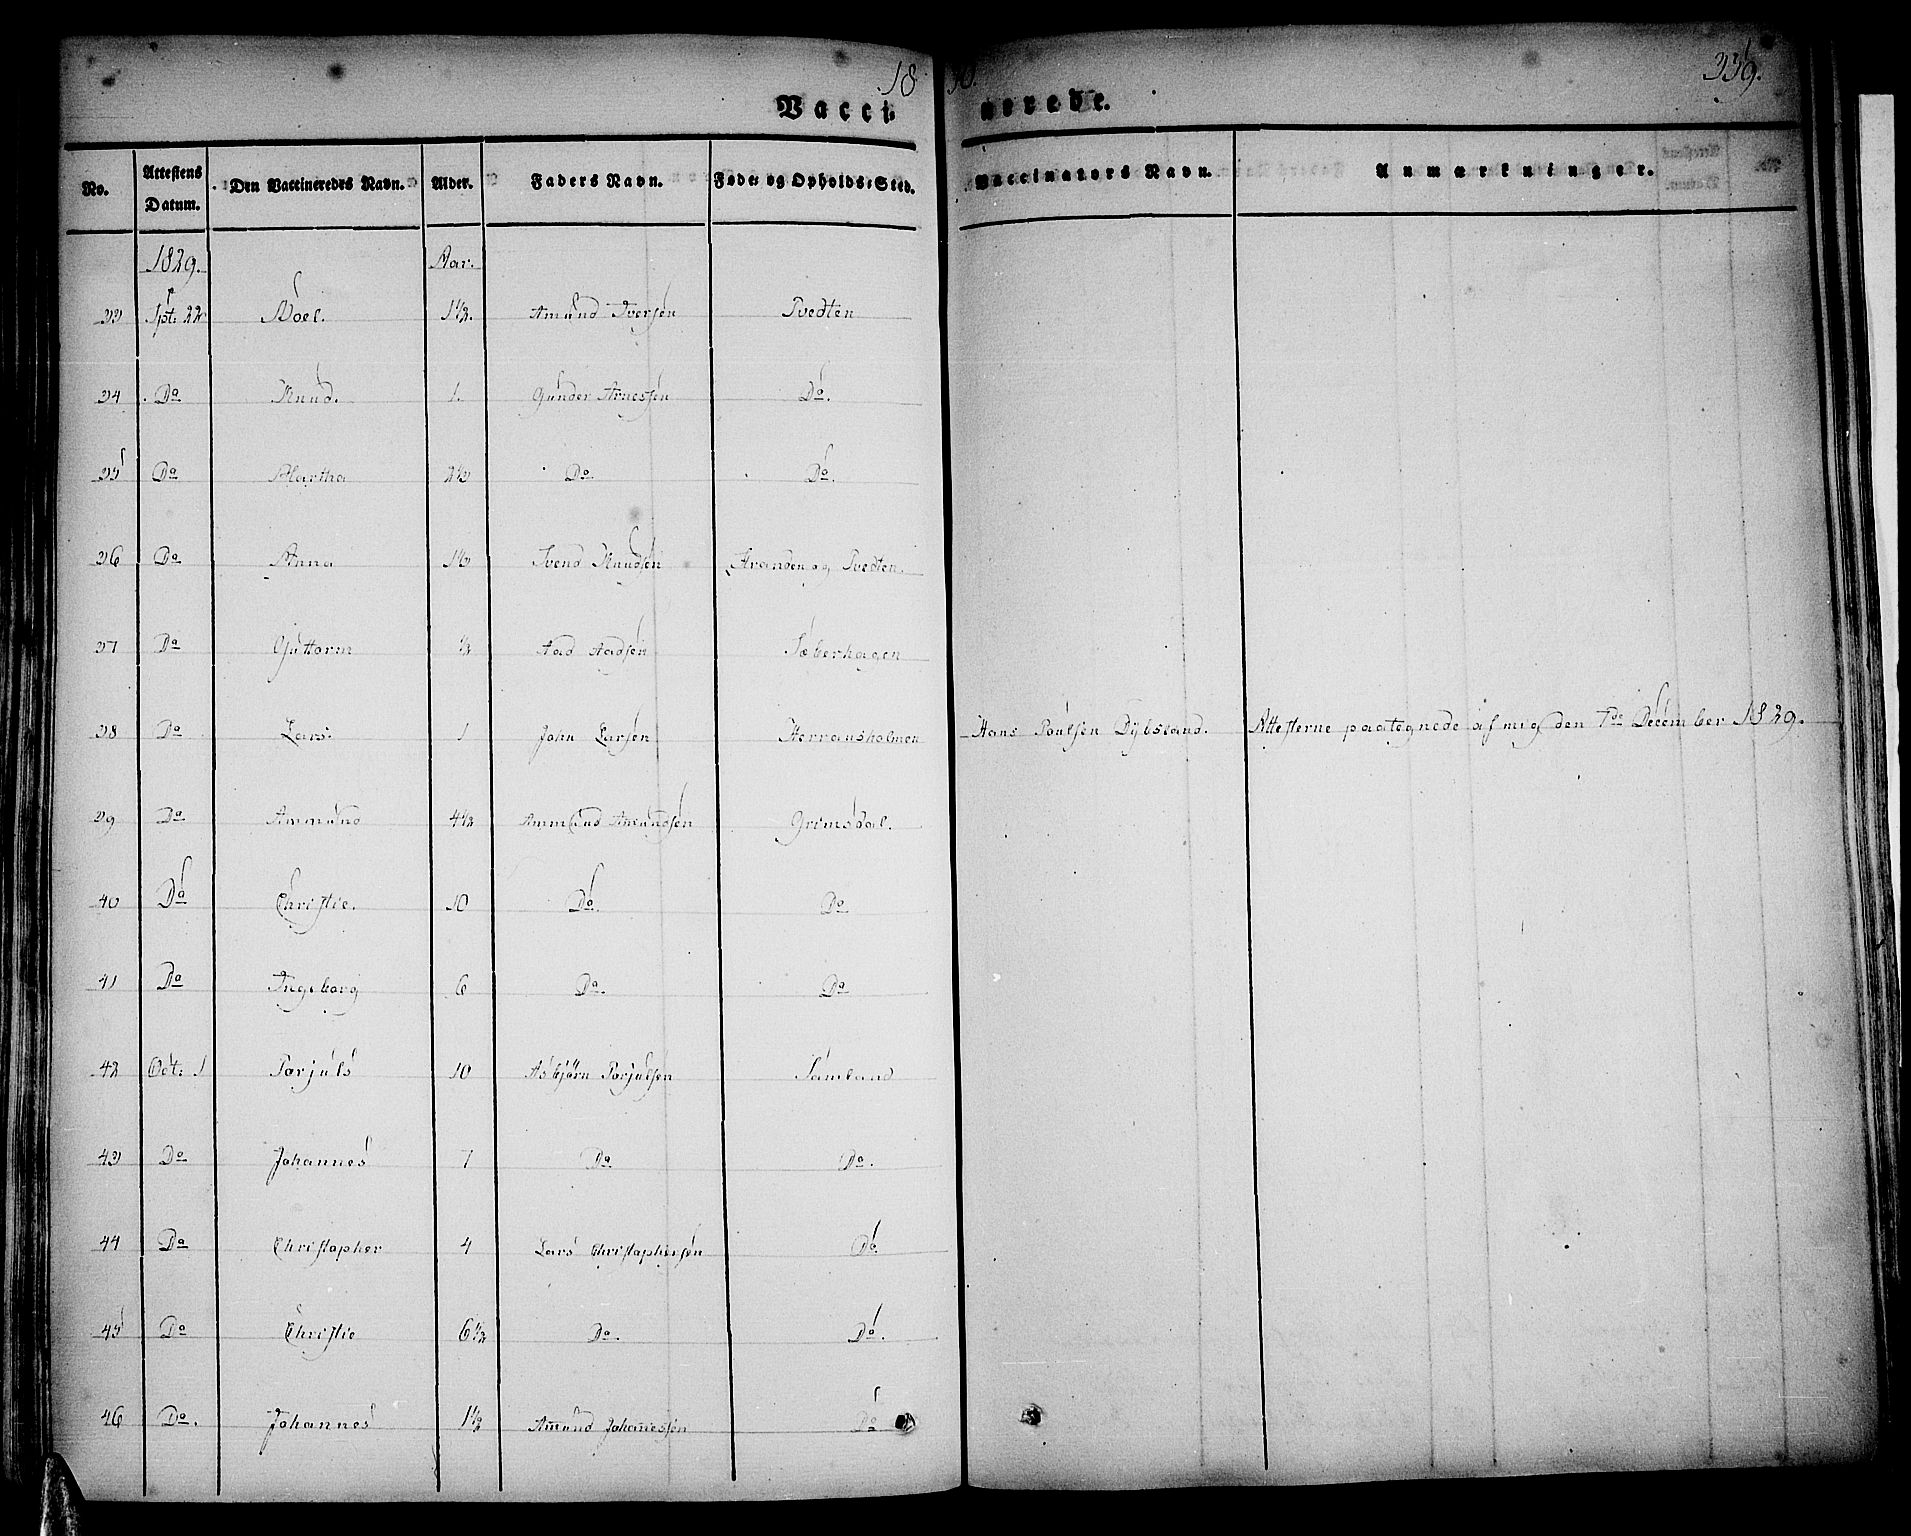 18
339.
Vacci- nerede.
No. Attestens Datum. Den Vaccineredes Navn. Alder. Faders Navn. Føde- og Opholds-Sted. Vaccinators Navn. Anmærkninger.
1829. Aar.
33 Spt: 22 Noel. 1½. Amund Iversen Tvedten
34 Do Knud. 1. Gunder Arnessen Do.
35 Do Martha 2½ Do Do.
36 Do Anna 1½ Svend Knudsen og Tvedten.
37 Do Guttorm ½ Aad Aadsen Sæberhagen
38 Do Lars. 1 John Larsen Herransholmen Hans Poulsen Dybsland. Attesterne paategnede af mig den 7de December 1829.
39 Do Ammund 4½ Ammund Amundsen Grimsdal.
40 Do Christie. 10 Do. Do
41 Do Ingeborg 6 Do. Do
42 Oct: 1 Torjuls 10 Asbjörn Torjulsen Samland
43 Do Johannes 7 Do Do.
44 Do Christopher 4 Lars Christophersen Do.
45 Do Christie 6½ Do. Do.
46 Do. Johannes 1½ Amund Johanessen Do